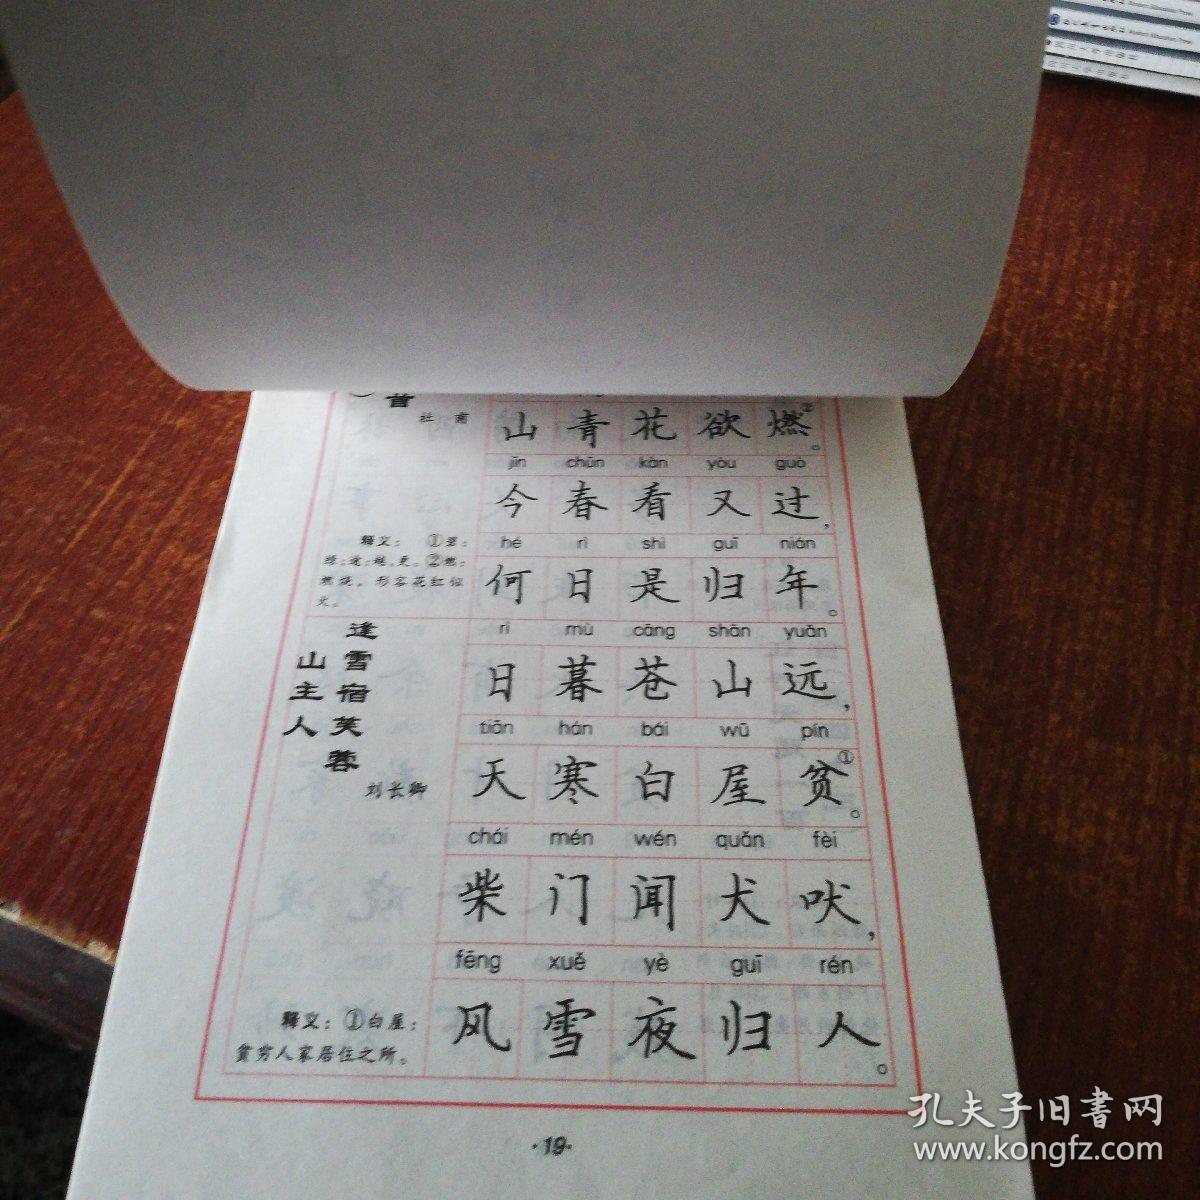 杜甫
山青花欲燃②。
jīn chūn kàn yòu guò
今春看又过，
hé rì shì guī nián
何日是归年。
释义：①碧：
绿；逾：越，更。②燃：
燃烧，形容花红似
火。
逢雪宿芙蓉
山主人
刘长卿
rì mù cāng shān yuǎn
日暮苍山远，
tiān hán bái wū pín
天寒白屋贫①。
chái mén wén quǎn fèi
柴门闻犬吠，
fēng xuě yè guī rén
风雪夜归人。
释义：①白屋：
贫穷人家居住之所。
·19·
孔夫子旧书网
www.kongfz.com